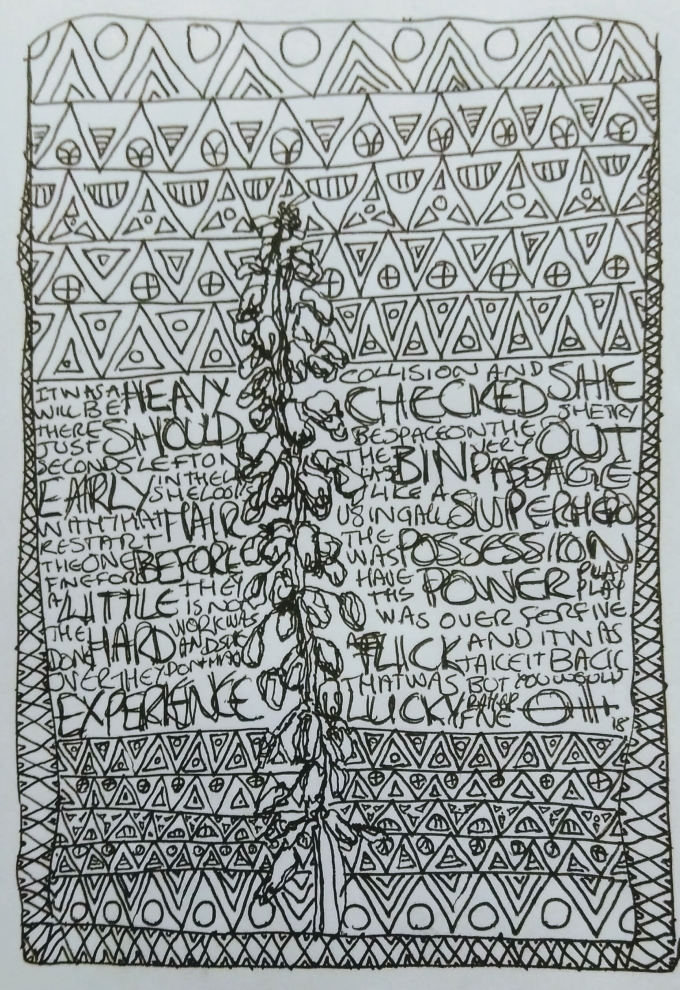 IT WAS A HEAVY COLLISION AND SHE
WILL BE CHECKED
THERE SHOULD BE SPACE ON THE OUT
JUST THE VERY
SECONDS LEFT ON BIN PASSAGE
EARLY IN THE
SHE LOOK LIKE A SUPERHERO
WITH THAT HAIR USING ALL
RESTART THE POSSESSION
THE ONE BEFORE WAS
FINE FOR THEY HAVE POWER PLAY
A LITTLE IS NOT THIS PLAY
THE HARD WORK WAS WAS OVER FOR FIVE
DONE AND SHE FLICK AND IT WAS
OVER THEY DON'T TAKE IT BACK
EXPERIENCE THAT WAS BUT YOU WOULD
LUCKY RATHER
FIVE
18